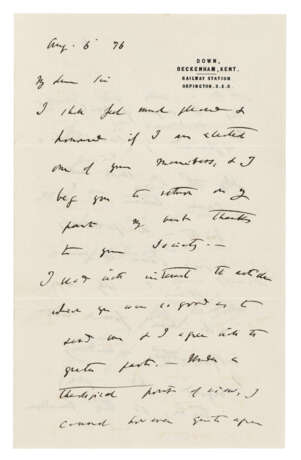 Aug. 6' 76
DOWN,
BECKENHAM, KENT.
RAILWAY STATION
ORPINGTON. S.E.R.
My dear Sir
I shall feel much pleased &
honoured if I am elected
one of your members, & I
beg you to return on my
part my best thanks
to your Society. —
I read with interest the article
which you were so good as to
send me & I agree with the
greater part. — Under a
theological point of view, I
cannot however quite agree